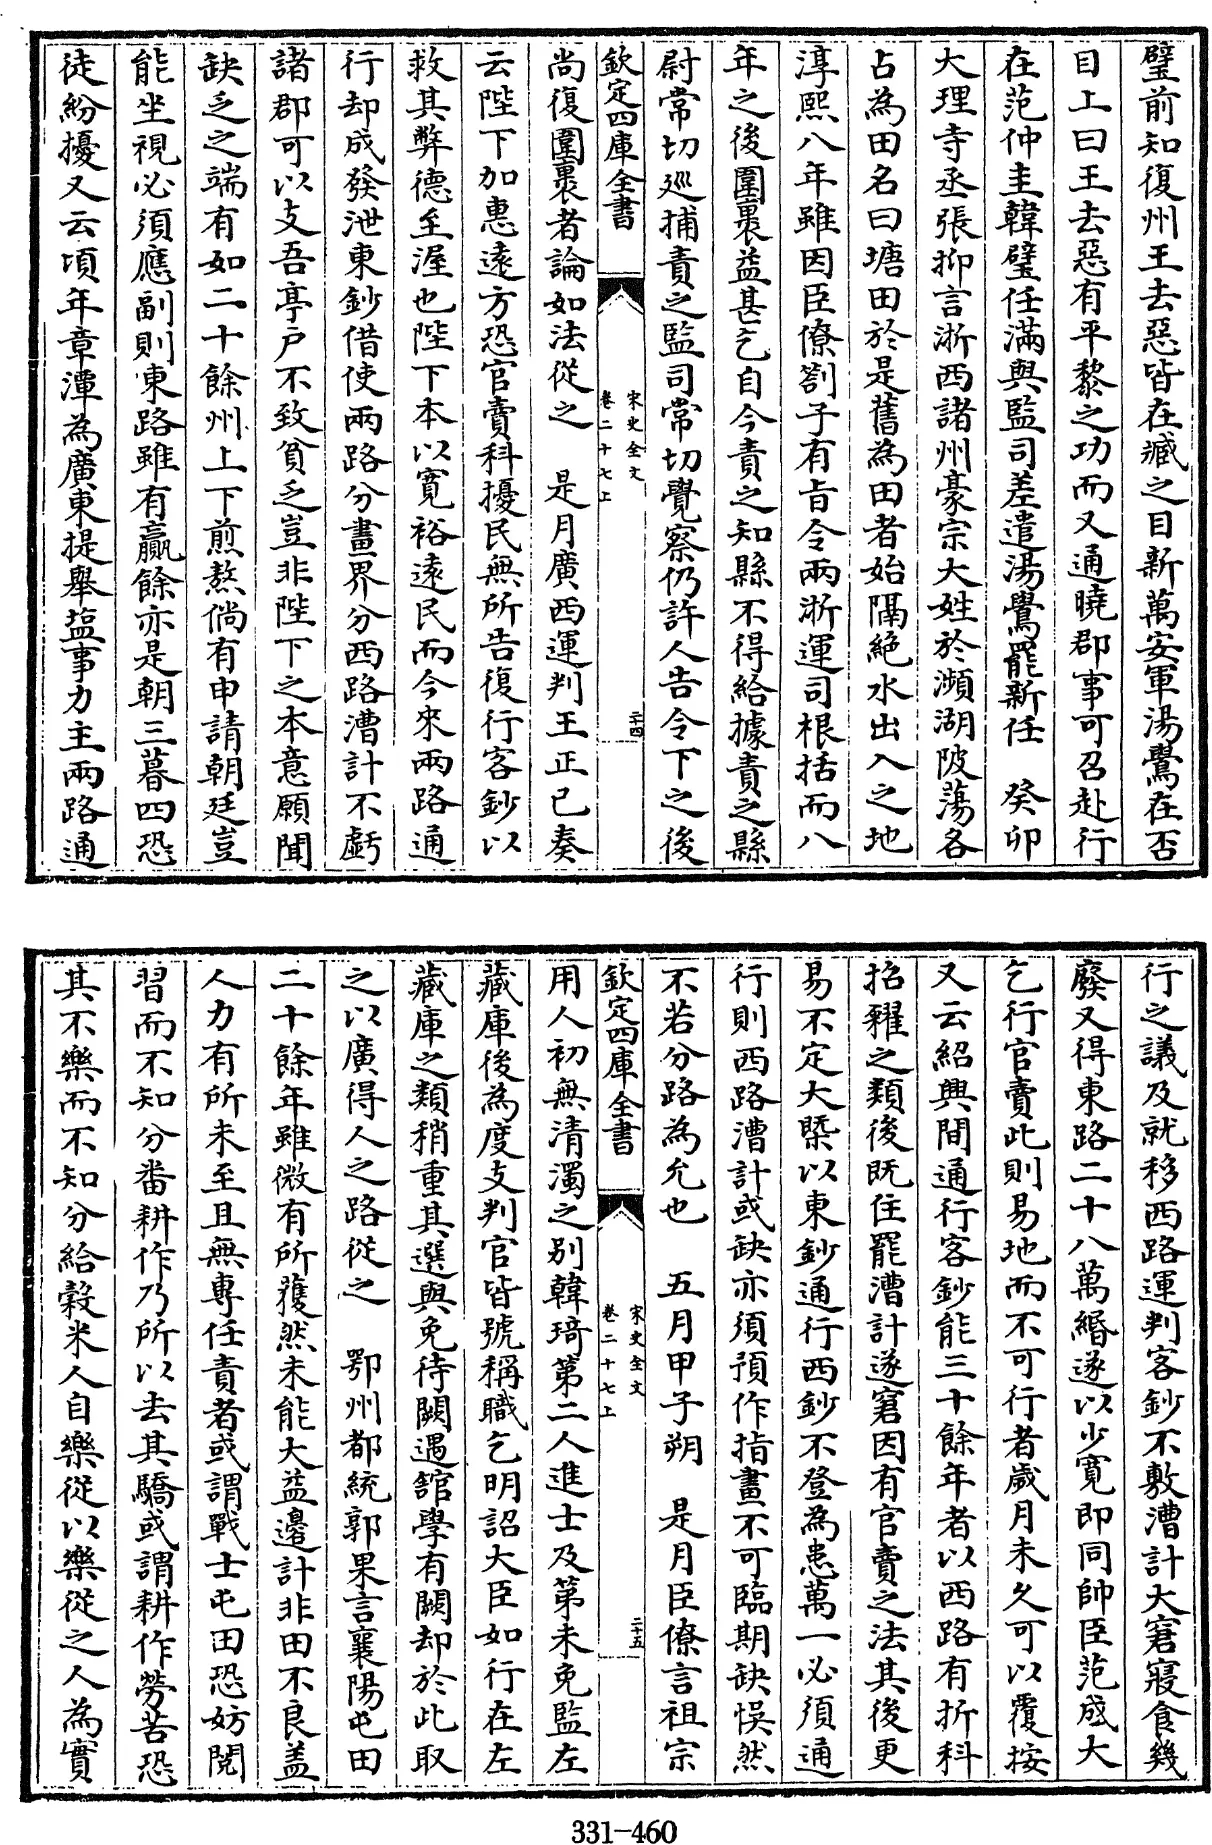 璧前知復州王去惡皆在臧之目新萬安軍湯鷽在否
目上曰王去惡有平黎之功而又通曉郡事可召赴行
在范仲圭韓璧任滿與監司差遣湯鷽罷新任　癸卯
大理寺丞張抑言浙西諸州豪宗大姓於瀕湖陂蕩各
占為田名曰塘田於是舊為田者始隔絶水出入之地
淳熙八年雖因臣僚劄子有㫖令兩浙運司根括而八
年之後圍裹益甚乞自今責之知縣不得給據責之縣
尉常切廵捕責之監司常切覺察仍許人告令下之後
欽定四庫全書
宋史全文
卷二十七上
二十四
尚復圍裹者論如法從之　是月廣西運判王正已奏
云陛下加惠逺方恐官賣科擾民無所告復行客鈔以
救其弊德至渥也陛下本以寛裕逺民而今來兩路通
行却成發泄東鈔借使兩路分畫界分西路漕計不虧
諸郡可以支吾亭户不致貧乏豈非陛下之本意願聞
缺乏之端有如二十餘州上下煎熬倘有申請朝廷豈
能坐視必須應副則東路雖有贏餘亦是朝三暮四恐
徒紛擾又云頃年章潭為廣東提舉塩事力主兩路通
行之議及就移西路運判客鈔不敷漕計大窘寢食幾
廢又得東路二十八萬緡遂以少寛即同帥臣范成大
乞行官賣此則易地而不可行者歲月未久可以覆按
又云紹興間通行客鈔能三十餘年者以西路有折科
招糴之類後既住罷漕計遂窘因有官賣之法其後更
易不定大槩以東鈔通行西鈔不登為患萬一必須通
行則西路漕計或缺亦須預作指畫不可臨期缺悞然
不若分路為允也　五月甲子朔　是月臣僚言祖宗
欽定四庫全書
宋史全文
卷二十七上
二十五
用人初無清濁之别韓琦第二人進士及第未免監左
藏庫後為度支判官皆號稱職乞明詔大臣如行在左
藏庫之類稍重其選與免待闕遇館學有闕却於此取
之以廣得人之路從之　鄂州都統郭果言襄陽屯田
二十餘年雖微有所獲然未能大益邊計非田不良盖
人力有所未至且無專任責者或謂戰士屯田恐妨閱
習而不知分畨耕作乃所以去其驕或謂耕作勞苦恐
其不樂而不知分給穀米人自樂從以樂從之人為實
331-460